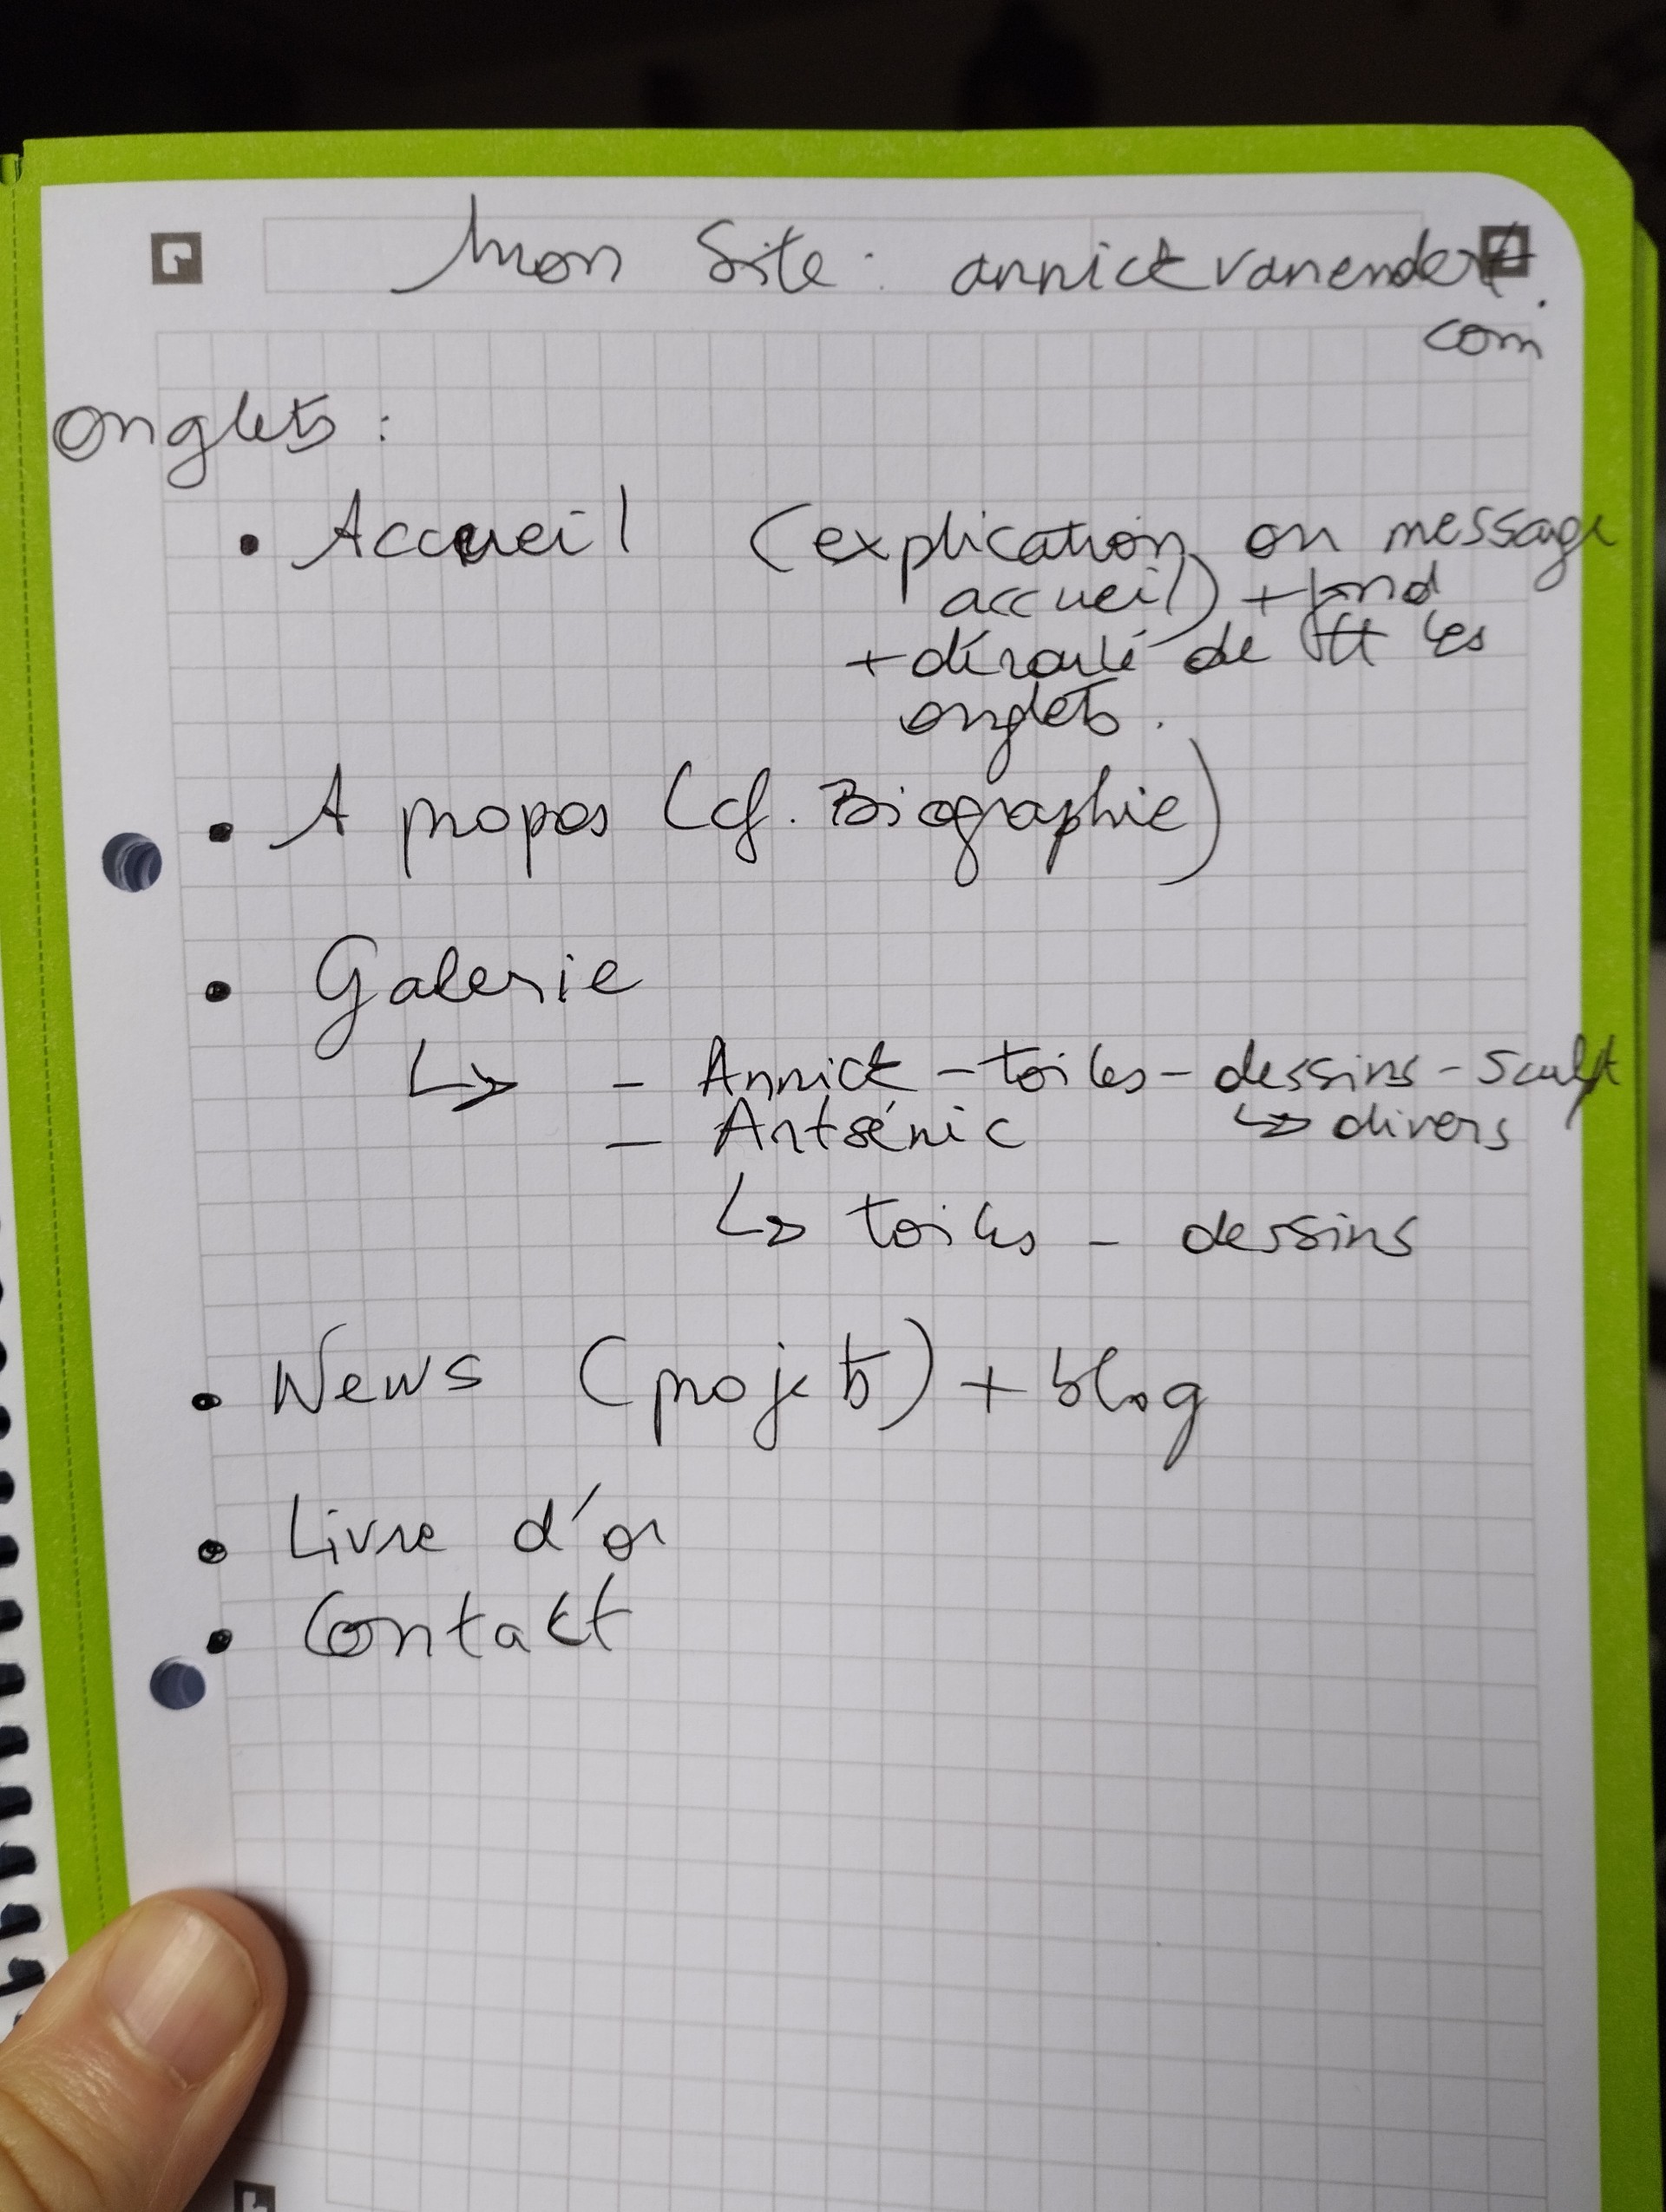 Mon Site : annickvanendert.
com
Onglets :
• Accueil (explication ou message
accueil) + fond
+ déroulé de tt les
onglets.
• A propos (cf. Biographie)
• Galerie
↳ - Annick - toiles - dessins - Sculpt
- Artsénic ↳ divers
↳ toiles - dessins
• News (projets) + blog
• Livre d'or
• Contakt